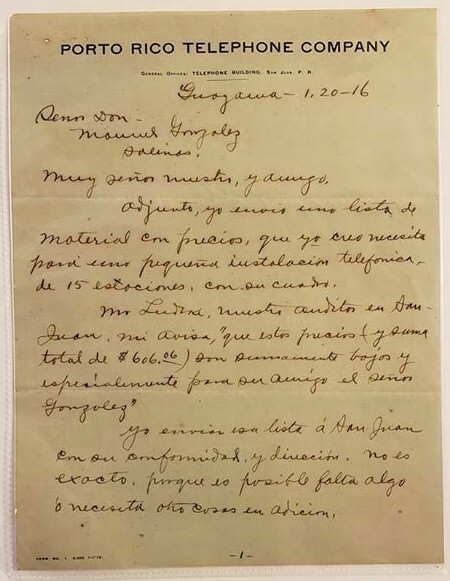 PORTO RICO TELEPHONE COMPANY
GENERAL OFFICES: TELEPHONE BUILDING, SAN JUAN, P. R.
Guayama - 1.20-16
Señor Don -
Manuel Gonzalez
Salinas.
Muy señor nuestro, y amigo.
Adjunto, yo envio una lista de
material con precios, que yo creo necesita
para una pequeña instalación telefonica,
de 15 estaciones, con su cuadro.
Mr nuestro auditor en San-
Juan, mi avisa, "que estos precios (y suma
total de $606.06) son sumamente bajos y
espesialmente para su amigo el señor
Gonzalez"
Yo envio esa lista á San Juan
con su conformidad, y dirección. No es
exacto, porque es posible falta algo
ó necesita otro cosas en adicion.
-1-